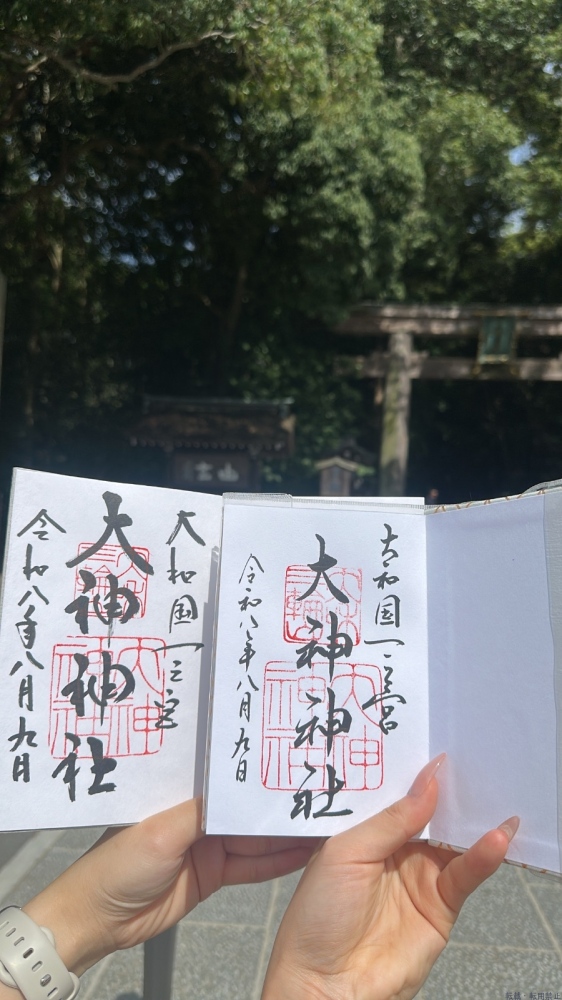 大和国一之宮
大神神社
令和八年八月九日
大和国一之宮
大神神社
令和八年八月九日
転載・転用禁止